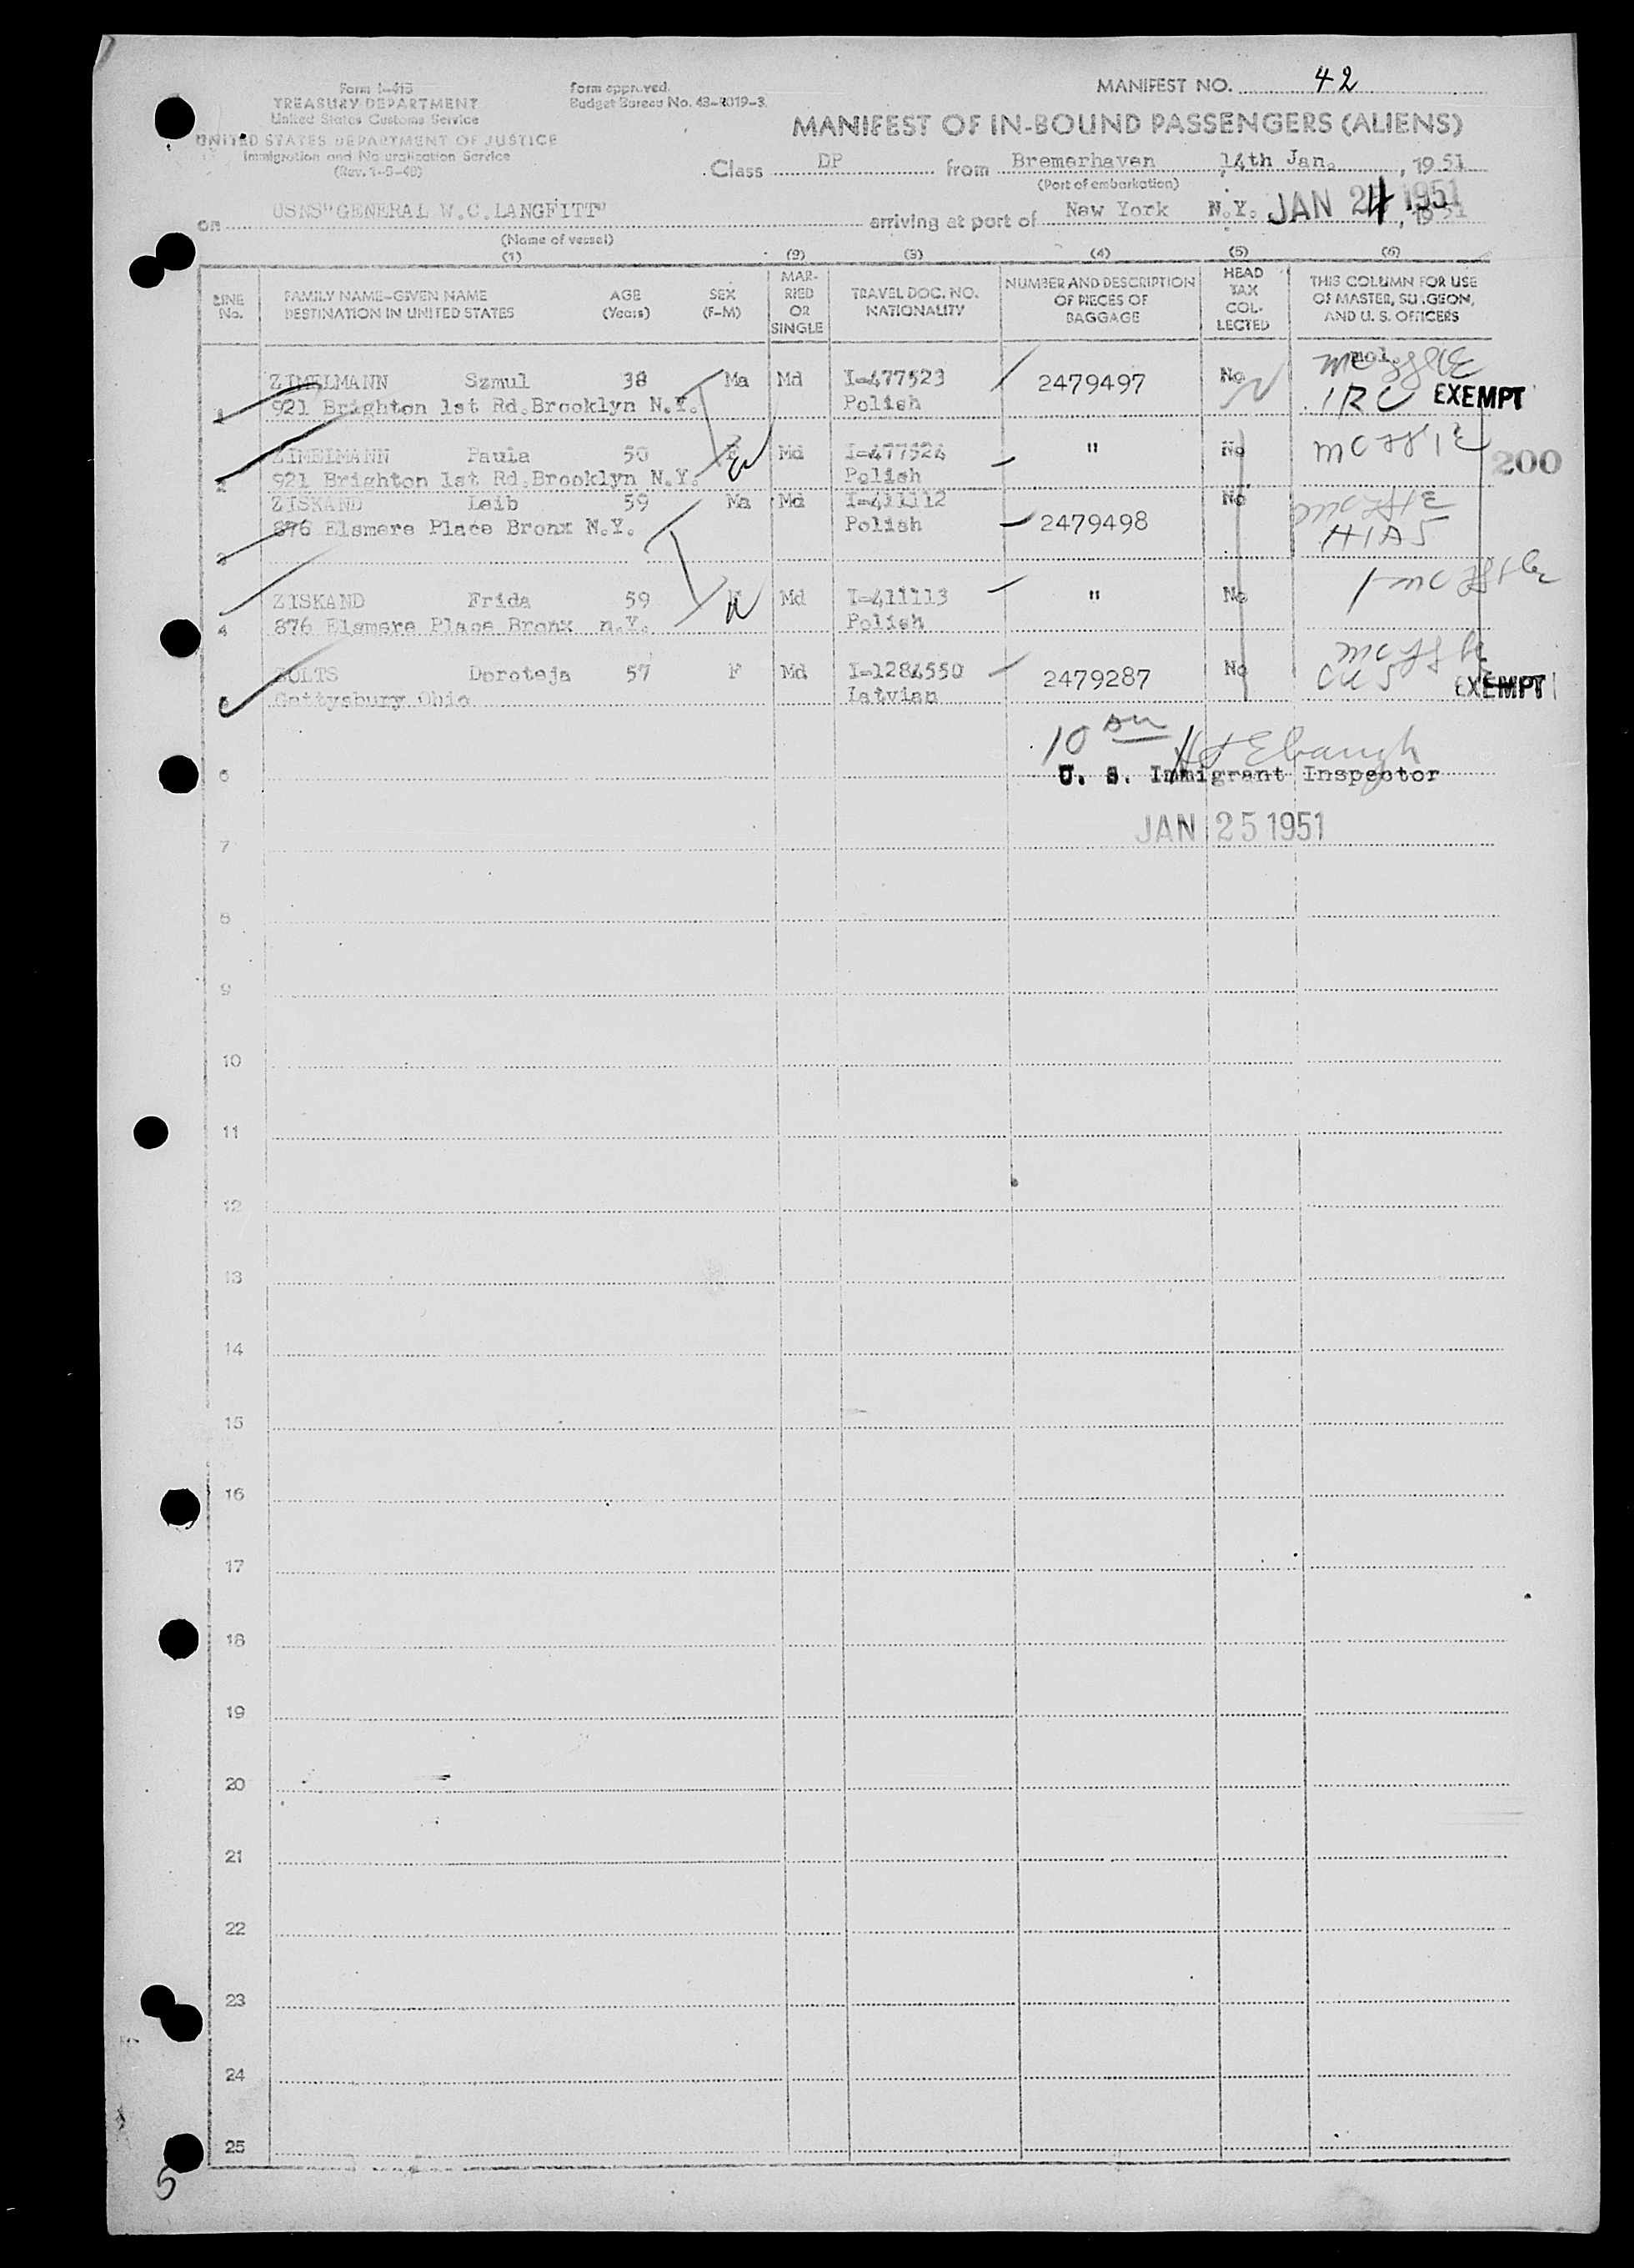 Form I-415
TREASURY DEPARTMENT
United States Customs Service
UNITED STATES DEPARTMENT OF JUSTICE
Immigration and Naturalization Service
(Rev. 1-5-48)
Form approved.
Budget Bureau No. 43-R019-3.
MANIFEST NO. 42
MANIFEST OF IN-BOUND PASSENGERS (ALIENS)
Class DP from Bremerhaven 14th Jan. , 1951
(Port of embarkation)
on USNS"GENERAL W.C.LANGFITT" arriving at port of New York N.Y. JAN 24 1951 , 1951
(Name of vessel)
(1) (2) (3) (4) (5) (6)
LINE No. FAMILY NAME—GIVEN NAME DESTINATION IN UNITED STATES AGE (Years) SEX (F-M) MARRIED OR SINGLE TRAVEL DOC. NO. NATIONALITY NUMBER AND DESCRIPTION OF PIECES OF BAGGAGE HEAD TAX COLLECTED THIS COLUMN FOR USE OF MASTER, SURGEON, AND U. S. OFFICERS
ZIMELMANN Szmul 38 Ma Md I-477523 2479497 No
1 921 Brighton 1st Rd.Brooklyn N.Y. Polish IRC EXEMPT
ZIMELMANN Paula 50 F Md I-477524 " No 200
2 921 Brighton 1st Rd.Brooklyn N.Y. Polish
ZISKAND Leib 59 Ma Md I-411112 No
876 Elsmere Place Bronx N.Y. Polish 2479498 HIAS
3
ZISKAND Frida 59 F Md I-411113 " No
4 876 Elsmere Place Bronx n.Y. Polish
ZOLTS Doroteja 57 F Md I-1284550 2479287 No
Gettysbury Ohio Latvian EXEMPT
10
U. S. Immigrant Inspector
6
JAN 25 1951
7
8
9
10
11
12
13
14
15
16
17
18
19
20
21
22
23
24
25
5